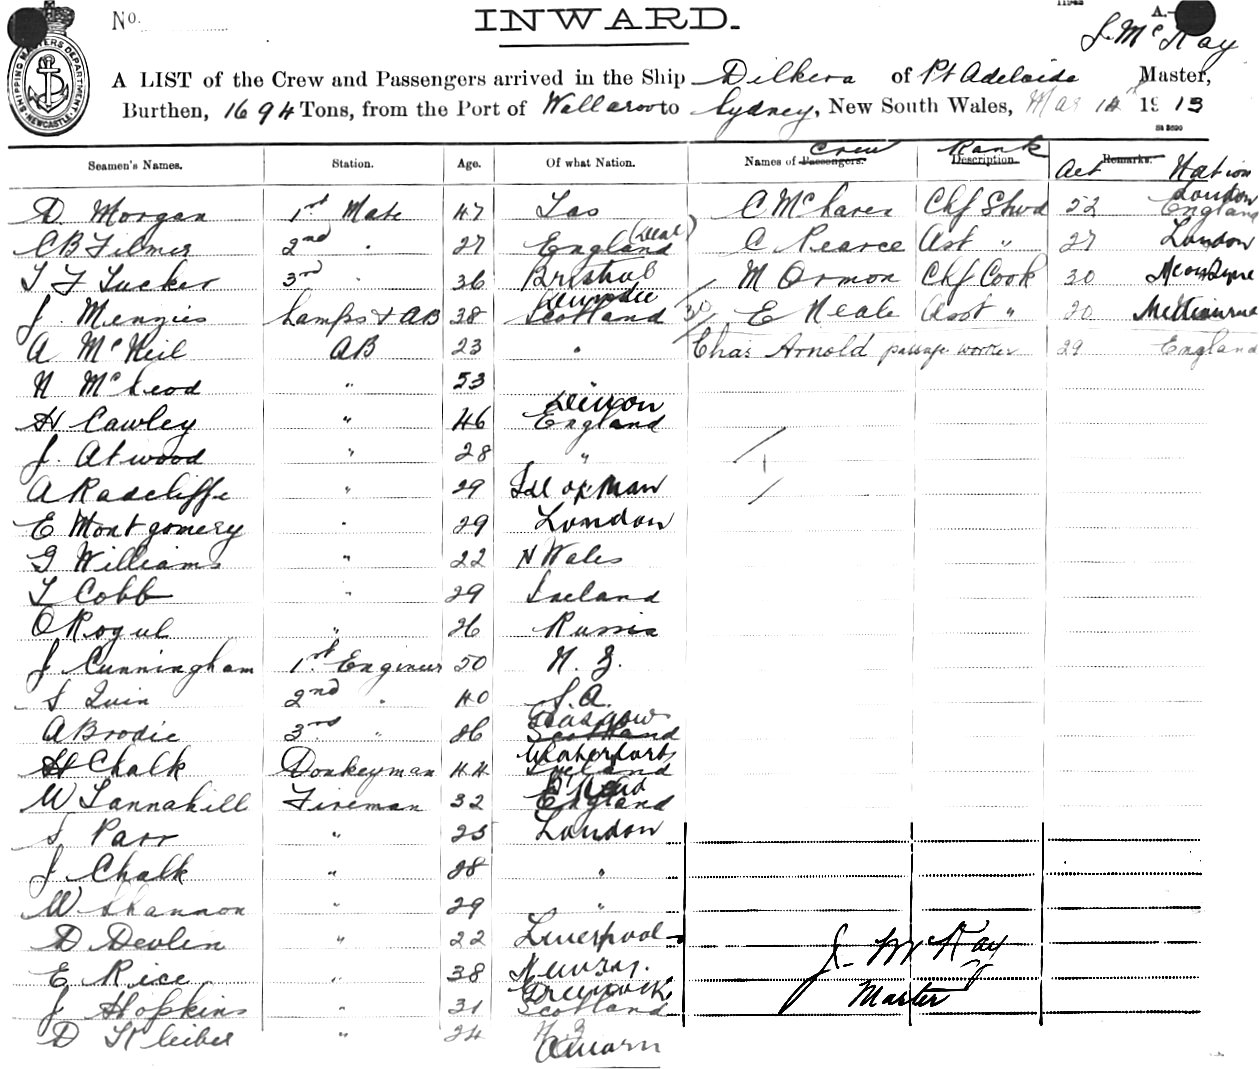 No.
INWARD.
J. McKay
A LIST of the Crew and Passengers arrived in the Ship Dilkera of Pt Adelaide Master,
Burthen, 1694 Tons, from the Port of Wallaroo to Sydney, New South Wales, Mar 14th 1913
SHIPPING MASTERS DEPARTMENT NEWCASTLE
Seamen's Names. Station. Age. Of what Nation. Names of Passengers. Crew Description. Rank Remarks. Nation
D Morgan 1st Mate 47 Tas C McLaren Chf Stwd 52 London England
C B Filmer 2nd " 27 England (Deal) C Pearce Ast " 27 London
T F Tucker 3rd " 36 Bristol M Ormon Chf Cook 30
J. Menzies Lamps & AB 38 Dundee Scotland 30 E Neale Asst " 20 Melbourne
A McNeil AB 23 " Chas Arnold passage worker 29 England
N McLeod " 53 "
H Cawley " 46 Devon England
J. Atwood " 28 "
A Radcliffe " 29 Isl of Man
E Montgomery " 29 London
G Williams " 22 N Wales
T Cobb " 29 Ireland
O Rogul " 26 Russia
J Cunningham 1st Engineer 50 N. Z.
S Quin 2nd " 40 S. A.
A Brodie 3rd " 26 Glasgow Scotland
H Chalk Donkeyman 44 Waterford Ireland
W Tannahill Fireman 32 B'Head England
S Parr " 25 London
J Chalk " 28 "
W Shannon " 29 "
D Devlin " 22 Liverpool
E Rice " 38 Newry.
J Hopkins " 31 Greenock Scotland
D Kleiber " 24 N. Z. Oamaru
J. McKay
Master